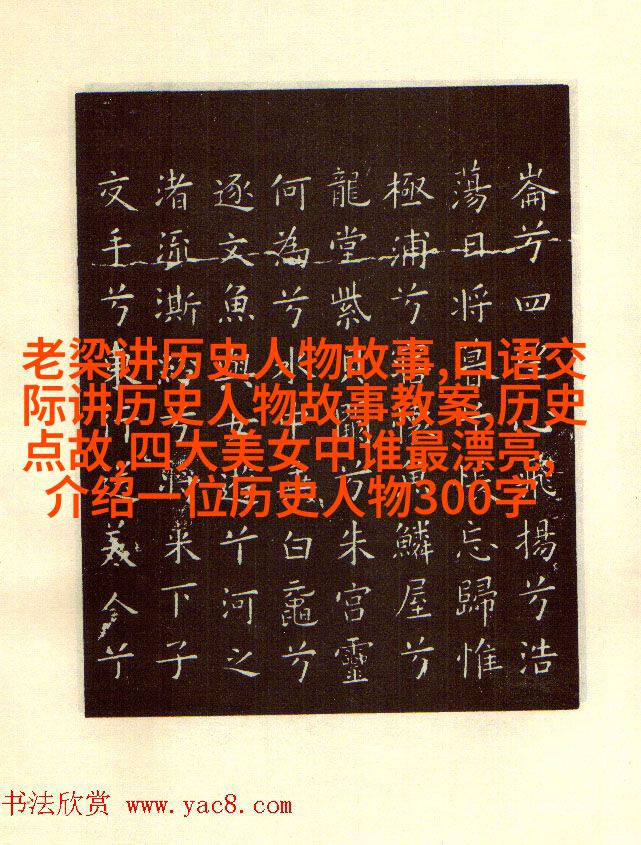 崙兮四望心飛揚兮浩
蕩日將暮兮悵忘歸惟
極浦兮寤懷魚鱗屋兮
龍堂紫貝闕兮朱宮靈
何為兮水中乘白黿兮
逐文魚與女遊兮河之
渚流澌紛兮將來下子
交手兮東行送美人兮
老梁讲历史人物故事,口语交
际讲历史人物故事教案,历史
点故,四大美女中谁最漂亮,
介绍一位历史人物300字
书法欣赏 www.yac8.com